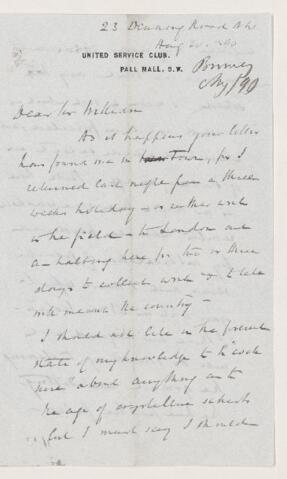 23 Denning Road N.W.
Aug 1890
UNITED SERVICE CLUB.
PALL MALL, S.W.
Bonney
Aug/90
Dear Sir William
As it happens your letter
has found me in town, for I
returned last night from a three
weeks holiday – or rather visit
to the field – to London and
am halting here for two or three
days to collect work up to take
with me into the country –
I should not like in the present
state of my knowledge to be "cock
sure" about anything as to
the age of crystalline schists
but I must say I should